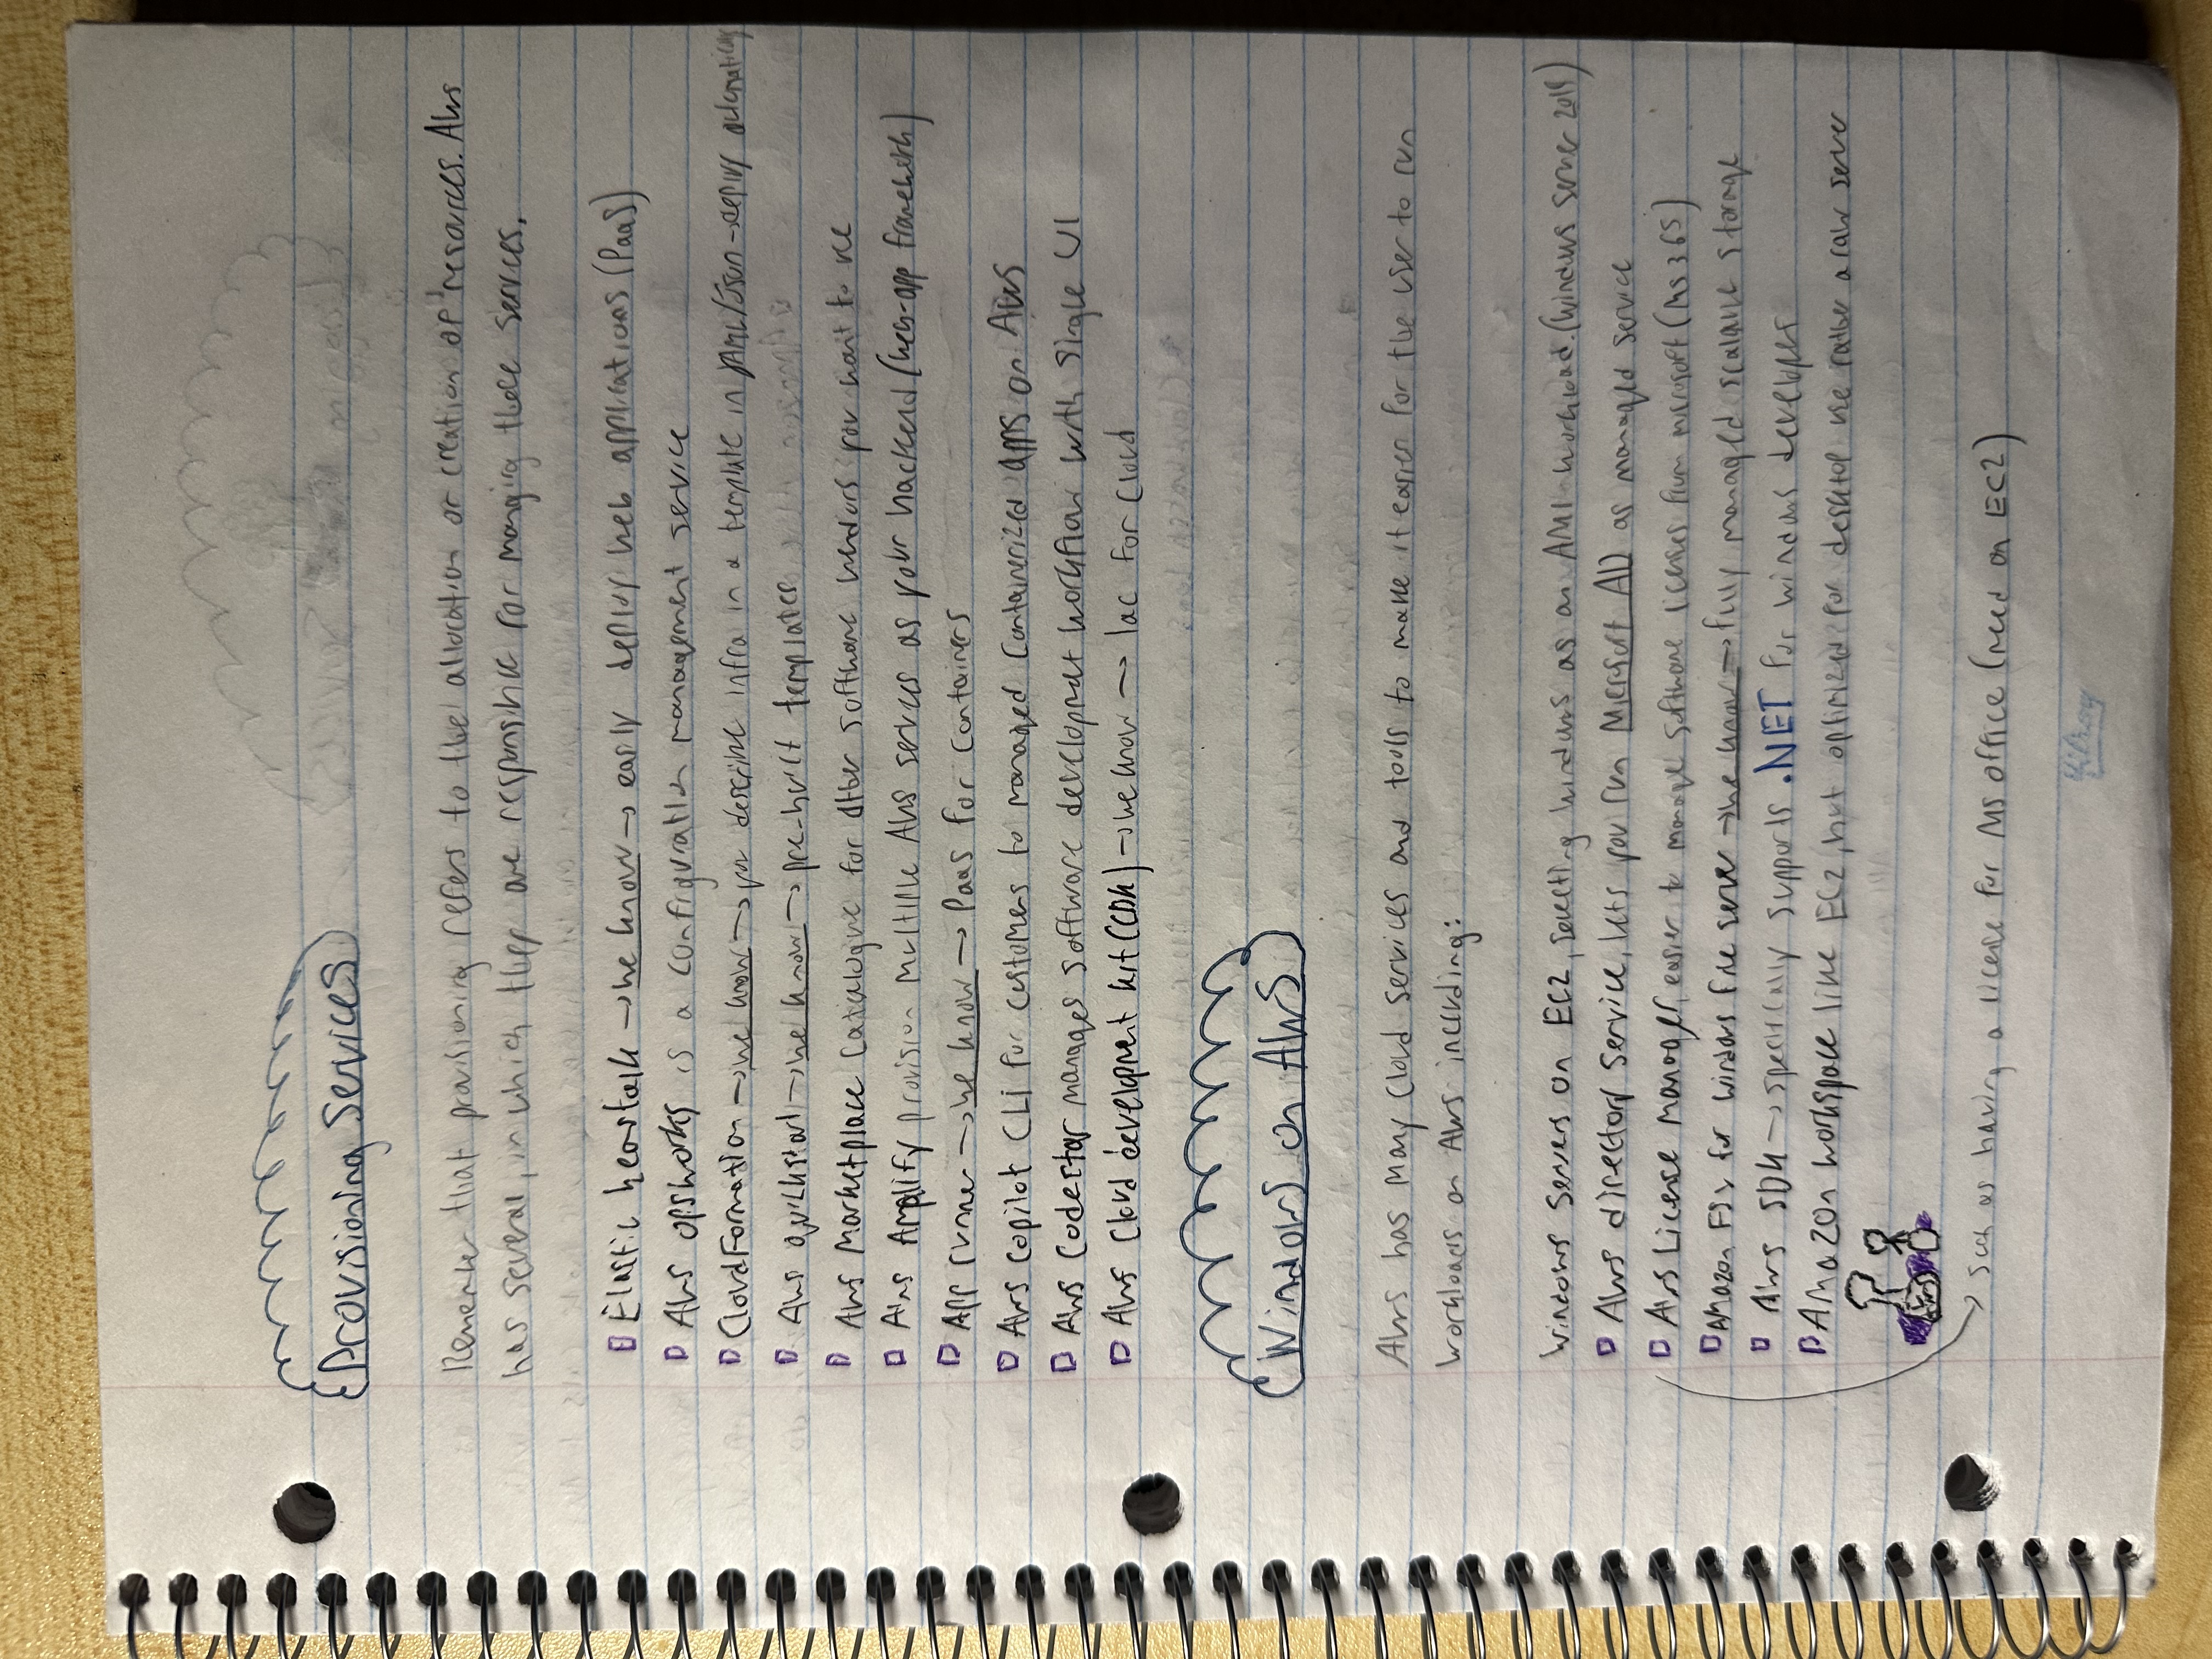 Provisioning Services
Remember that provisioning refers to the allocation or creation of resources. AWS
has several, in which they are responsible for manging these services.
Elastic beanstalk → we know → easily deploy web applications (PaaS)
AWS opsworks is a configuration management service
CloudFormation → we know → you describe infra in a template in YAML/Json → deploy automatically
AWS quickstart → we know → pre-built templates
AWS Marketplace Catalogue for other software vendors you want to use
AWS Amplify provision multiple AWS services as your backend (web-app framework)
App runner → we know → PaaS for containers
AWS Copilot CLI for customers to managed containerized apps on AWS
AWS Codestar manages software development workflow with single UI
AWS Cloud development kit (CDK) → we know → Iac for Cloud
Windows on AWS
AWS has many cloud services and tools to make it easier for the user to run
workloads on AWS including:
Windows servers on EC2, selecting windows as an AMI workload. (Windows Server 2019)
AWS directory service, lets you run Microsoft AD as managed service
AWS License Manager, easier to manage software licenses from microsoft (MS 365)
Amazon FSx for windows file server → we know → fully managed scalable storage
AWS SDK → specifically supports .NET for windows developers
Amazon workspace like EC2, but optimized for desktop use rather a raw server
→ such as having a license for MS office (need on EC2)
Hilroy